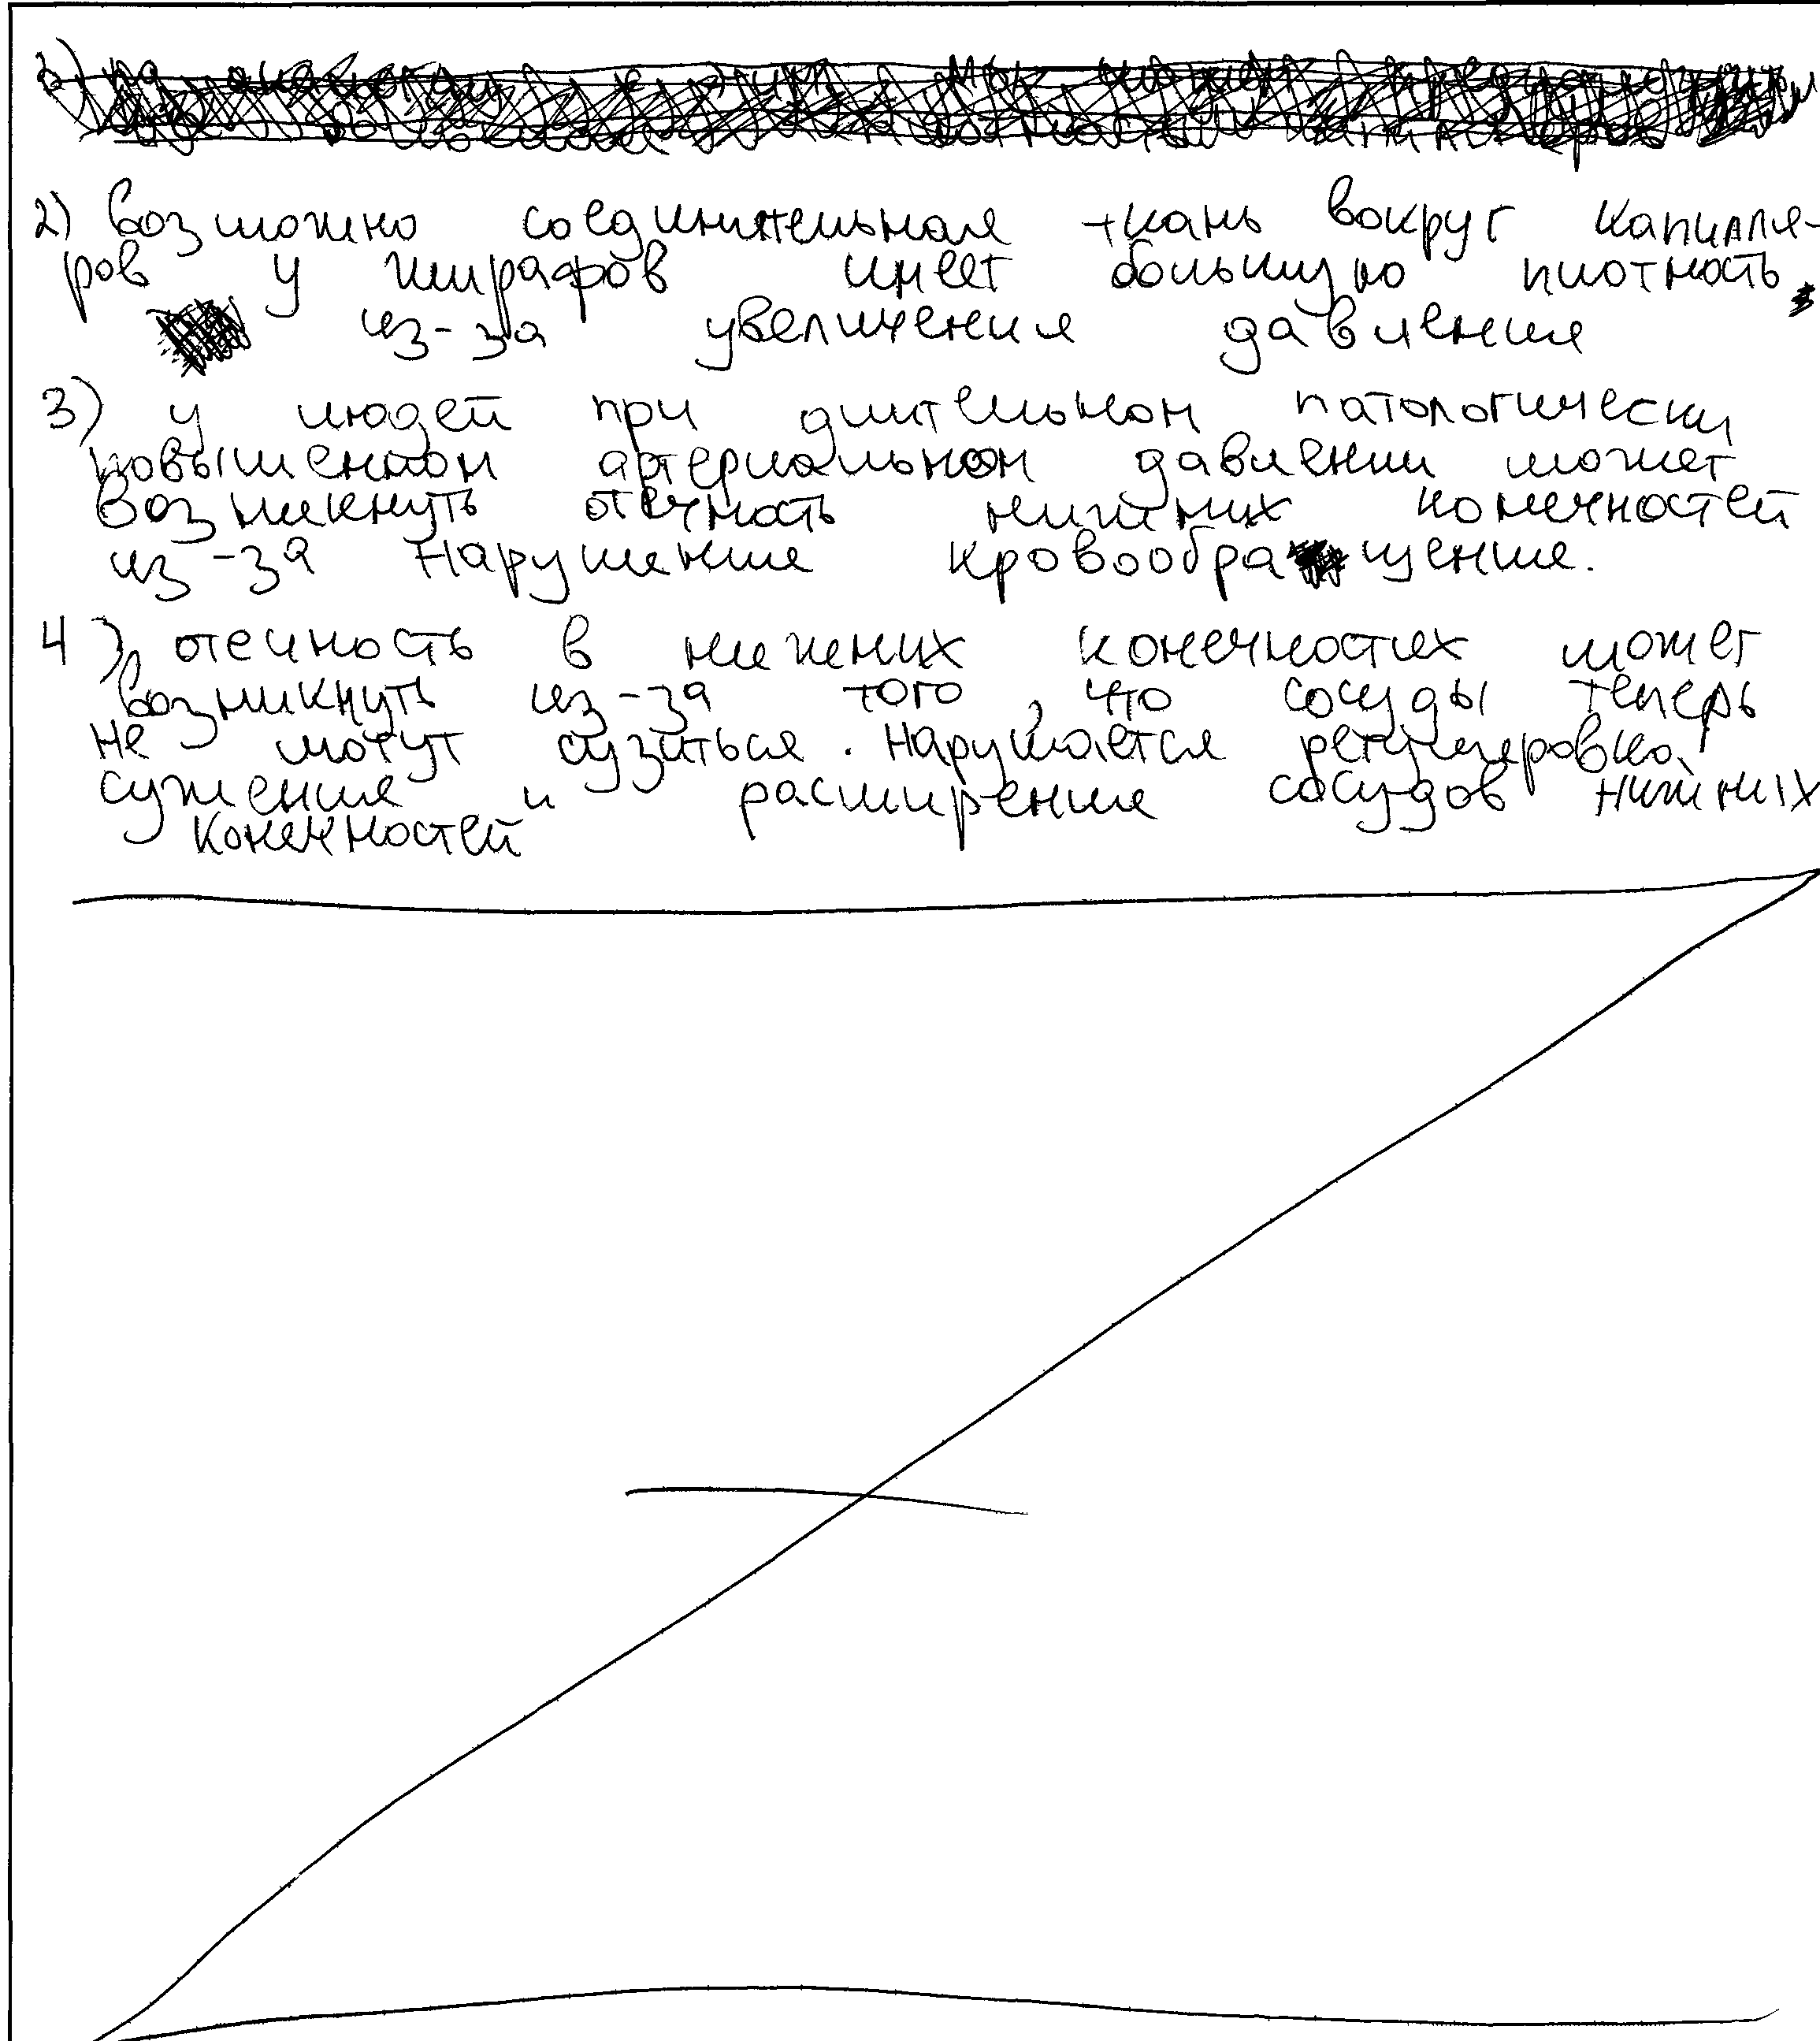 2) возможно соединительная ткань вокруг капилля-
ров у жирафов имеет большую плотность
из-за увеличения давления
3) у людей при длительном патологически
повышенном артериальном давлении может
возникнуть отечность нижних конечностей
из-за нарушение кровообращение.
4) отечность в нижних конечностях может
возникнуть из-за того, что сосуды теперь
не могут сузиться. нарушается
сужение и расширение сосудов нижних
конечностей